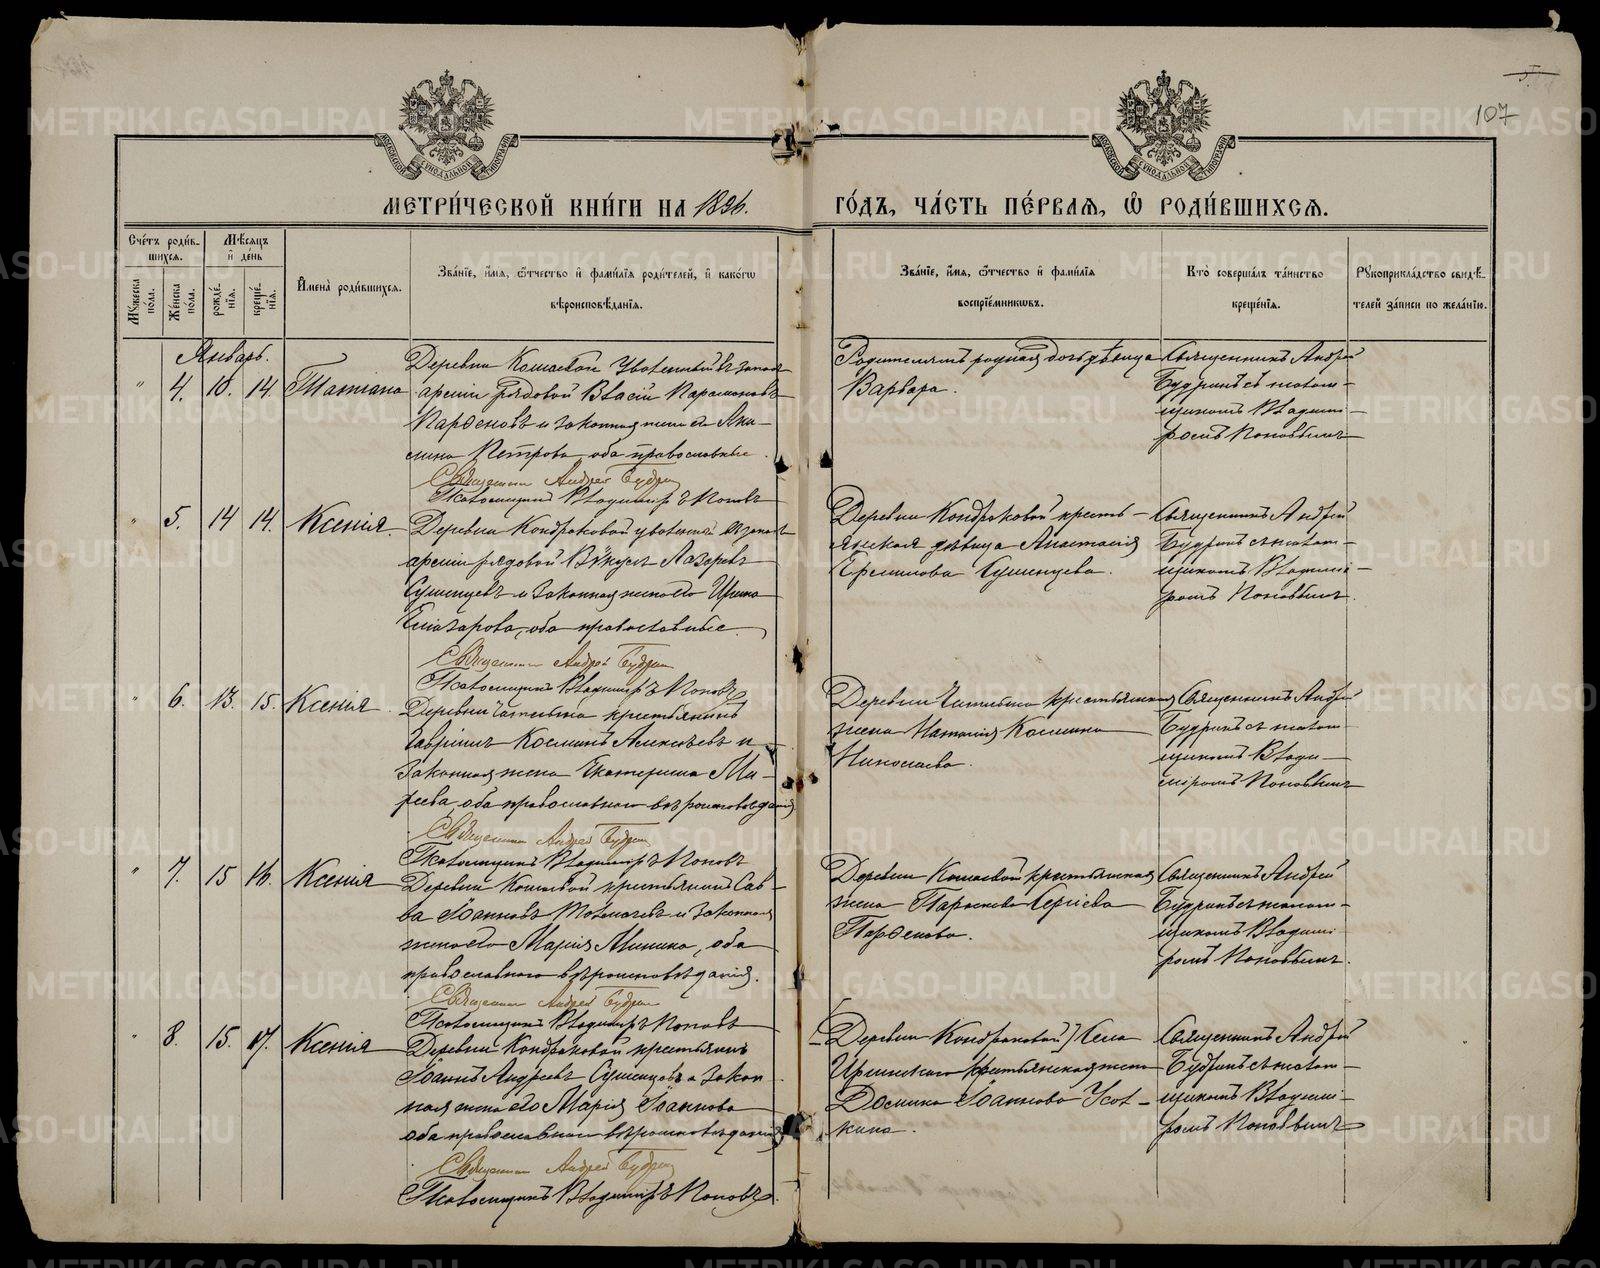 107
МЕТРИ́ЧЕСКОЙ КНИ́ГИ НА 1896.
ГО́ДЪ, ЧА́СТЬ ПЕ́РВАЯ, Ѿ РОДИ́ВШИХСЯ.
Сче́тъ роди́вшихся.
Мѣ́сяцъ и҆ де́нь
Му́жеска по́ла.
Же́нска по́ла.
рожде́нїя.
креще́нїя.
И҆мена̀ роди́вшихся.
Зва́нїе, и҆́мя, ѻ҆́тчество и҆ фами́лїя роди́телей, и҆ како́гѡ вѣроисповѣ́данїя.
Зва́нїе, и҆́мя, ѻ҆́тчество и҆ фами́лїя воспрїе́мникѡвъ.
Кто̀ соверша́лъ та́инство креще́нїя.
Рꙋкоприкла́дство свидѣ́телей за́писи по жела́нїю.
Январь.
" 4. 10. 14. Татiана
Деревни Кошаевой Уволенный въ запасъ
армiи рядовой Власiй Парамоновъ
Парѳеновъ и законная жена его Аки-
лина Петрова оба православные.
Священникъ Андрей Будринъ
Псаломщикъ Владимiръ Поповъ
Родителямъ родная дочь дѣвица
Варвара.
Священникъ Андрей
Будринъ съ псалом-
щикомъ Владимi-
ромъ Поповымъ
" 5. 14 14. Ксенiя.
Деревни Кондраковой уволенный въ запасъ
армiи рядовой Викулъ Лазаревъ
Сушинцевъ и законная жена его Ирина
Елiазарова, оба православные.
Священникъ Андрей Будринъ
Псаломщикъ Владимiръ Поповъ
Деревни Кондраковой кресть-
янская дѣвица Анастасiя
Ермилова Сушинцева.
Священникъ Андрей
Будринъ съ псалом-
щикомъ Владимi-
ромъ Поповымъ.
" 6. 13. 15. Ксенiя.
крестьянинъ
Гаврiилъ Косминъ Алексѣевъ и
законная жена Екатерина Ма-
оба православнаго вѣроисповѣданiя
Священникъ Андрей Будринъ
Псаломщикъ Владимiръ Поповъ
крестьянская
жена Наталiя Космина
Николаева.
Священникъ Андрей
Будринъ съ псалом-
щикомъ Влади-
мiромъ Поповымъ
" 7. 15 16. Ксенiя
Деревни Кошаевой крестьянинъ Сав-
ва Iоанновъ Толмачевъ и законная
жена его Марiя Минина, оба
православнаго вѣроисповѣданiя.
Священникъ Андрей Будринъ
Псаломщикъ Владимiръ Поповъ
Деревни Кошаевой крестьянская
жена Параскева Сергiева
Парѳенова.
Священникъ Андрей
Будринъ съ псалом-
щикомъ Владимi-
ромъ Поповымъ.
" 8. 15. 17. Ксенiя
Деревни Кондраковой крестьянинъ
Iоаннъ Андреевъ Сушинцовъ и закон-
ная жена его Марiя Iоаннова
оба православнаго вѣроисповѣданiя
Священникъ Андрей Будринъ
Псаломщикъ Владимiръ Поповъ.
[Деревни Кондраковой] Села
крестьянская жена
Домника Iоаннова Усол-
кина.
Священникъ Андрей
Будринъ съ псалом-
щикомъ Владимi-
ромъ Поповымъ
METRIKI.GASO-URAL.RU